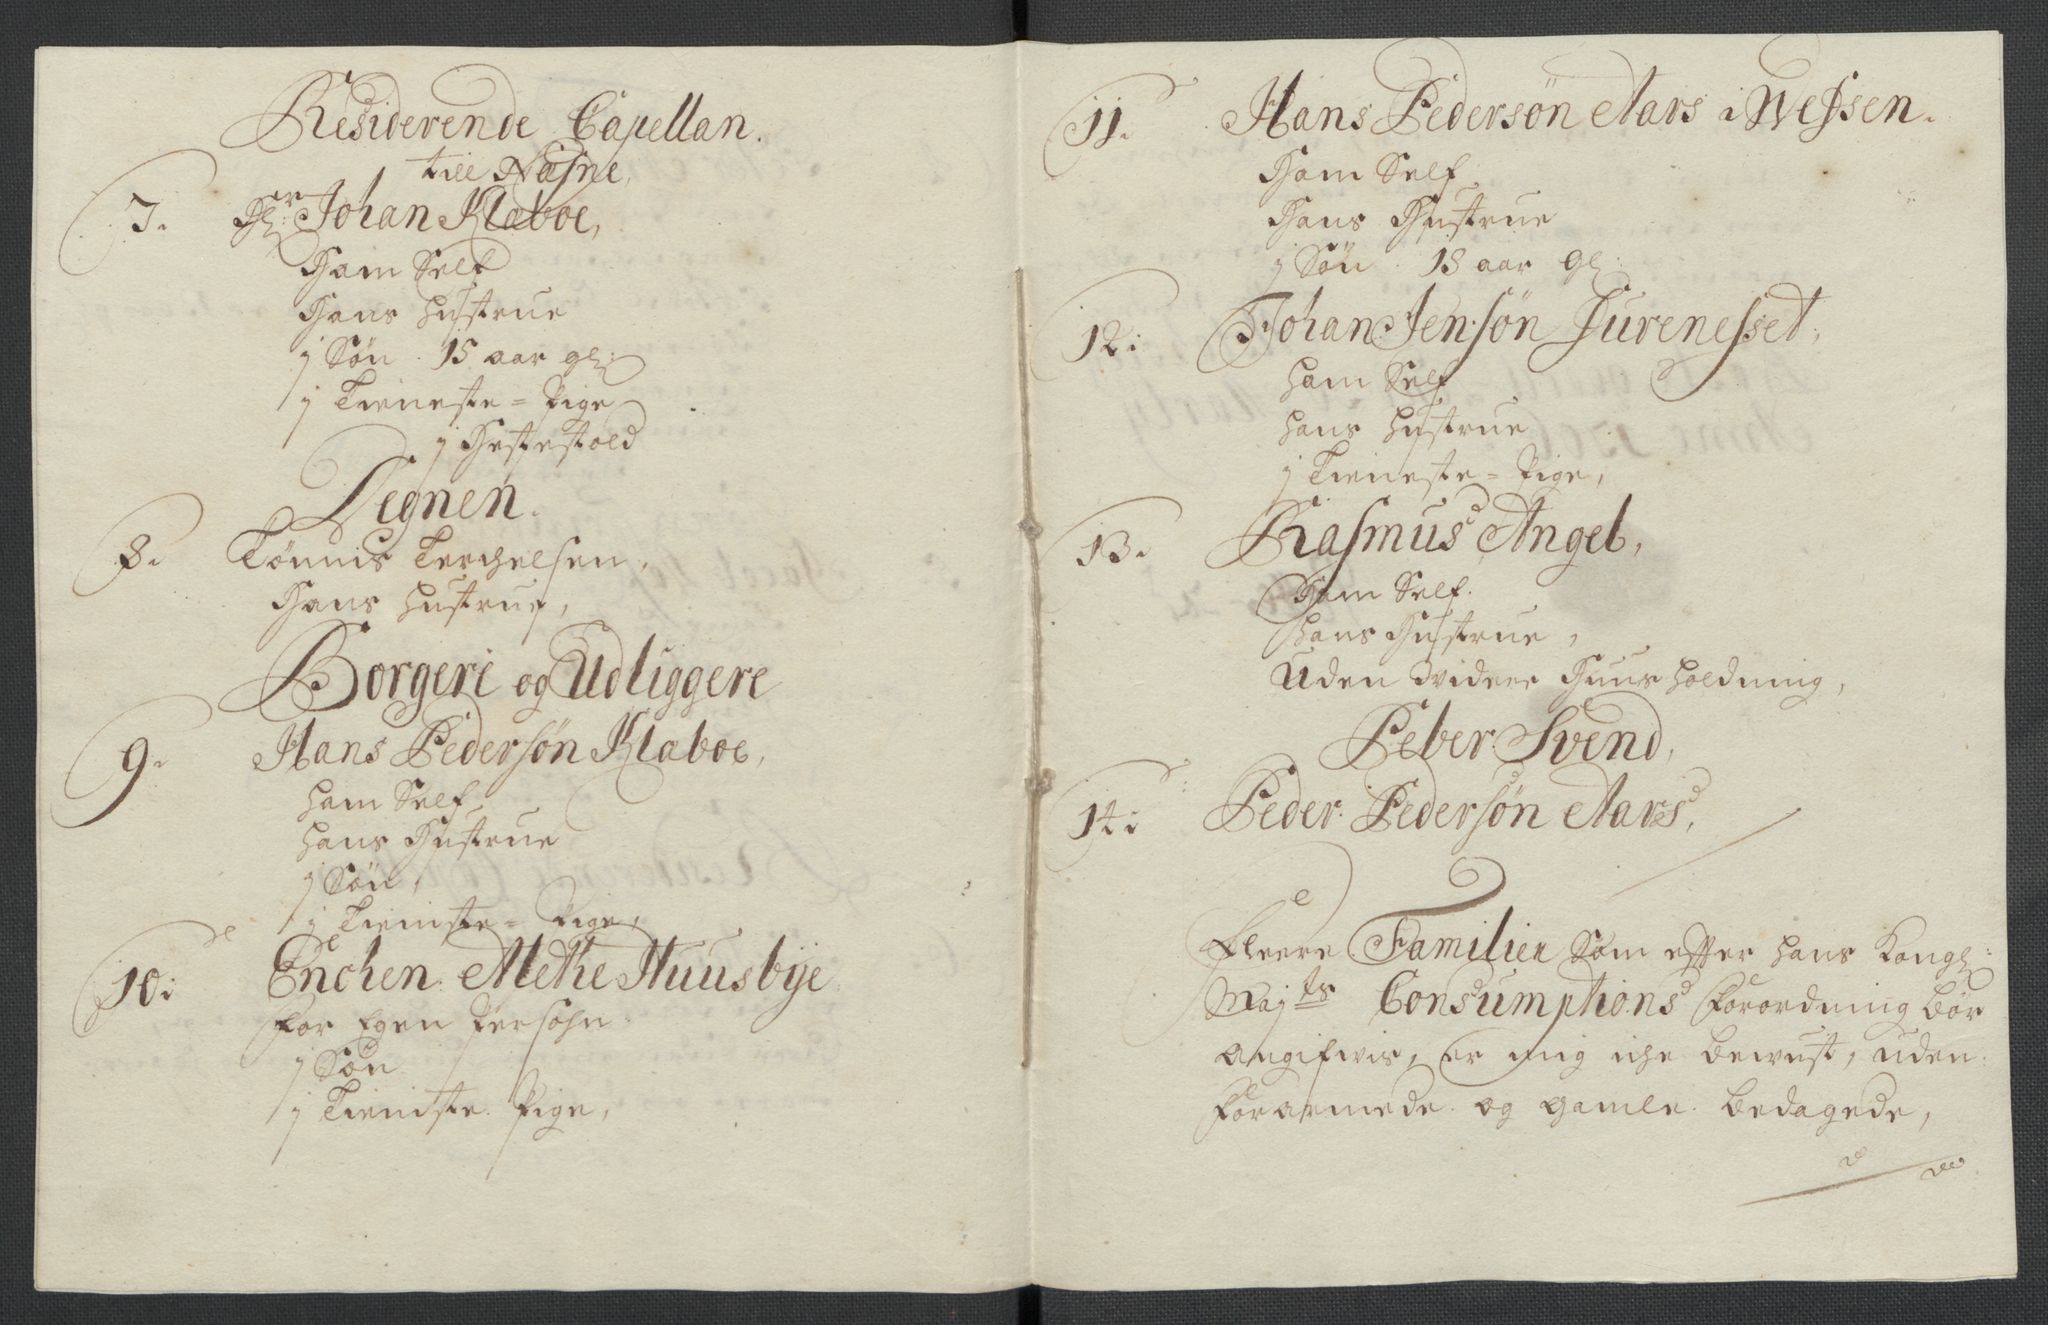 Residerende Capellan.
till Nasne,
7. Hl:er Johan Klaboe,
Ham Self
Hans Hustrue
j Søn. 15 aar gl:
j Tieneste=Pige
j Hestestold
Degnen.
8. Tønnis Terchelsen,
Hans Hustrue,
Borgere og Udliggere
9. Hans Pedersøn Klaboe,
Ham Self
Hans Hustrue
j Søn,
j Tieniste=Pige,
10: Enchen Methe Huusbye
For Egen Persohn
j Søn
j Tieniste Pige,
11. Hans Pedersøn Aars i Wessen.
Ham Self
Hans Hustrue
j Søn 18 aar gl:
12: Johan Jensøn Jurenesset,
Ham Self
Hans Hustrue
j Tieneste=Pige,
13. Rasmus Angel,
Ham Self.
Hans Hustrue,
Uden widere Huusholdning,
Peber Svend,
14: Peder Pedersøn Aars,
Fleere Familier som effter Hans Kongl:
Maj:ts Consumptions Forordning bør
angifwis, er mig iche bewust, uden
Forarmede og gamle bedagede,